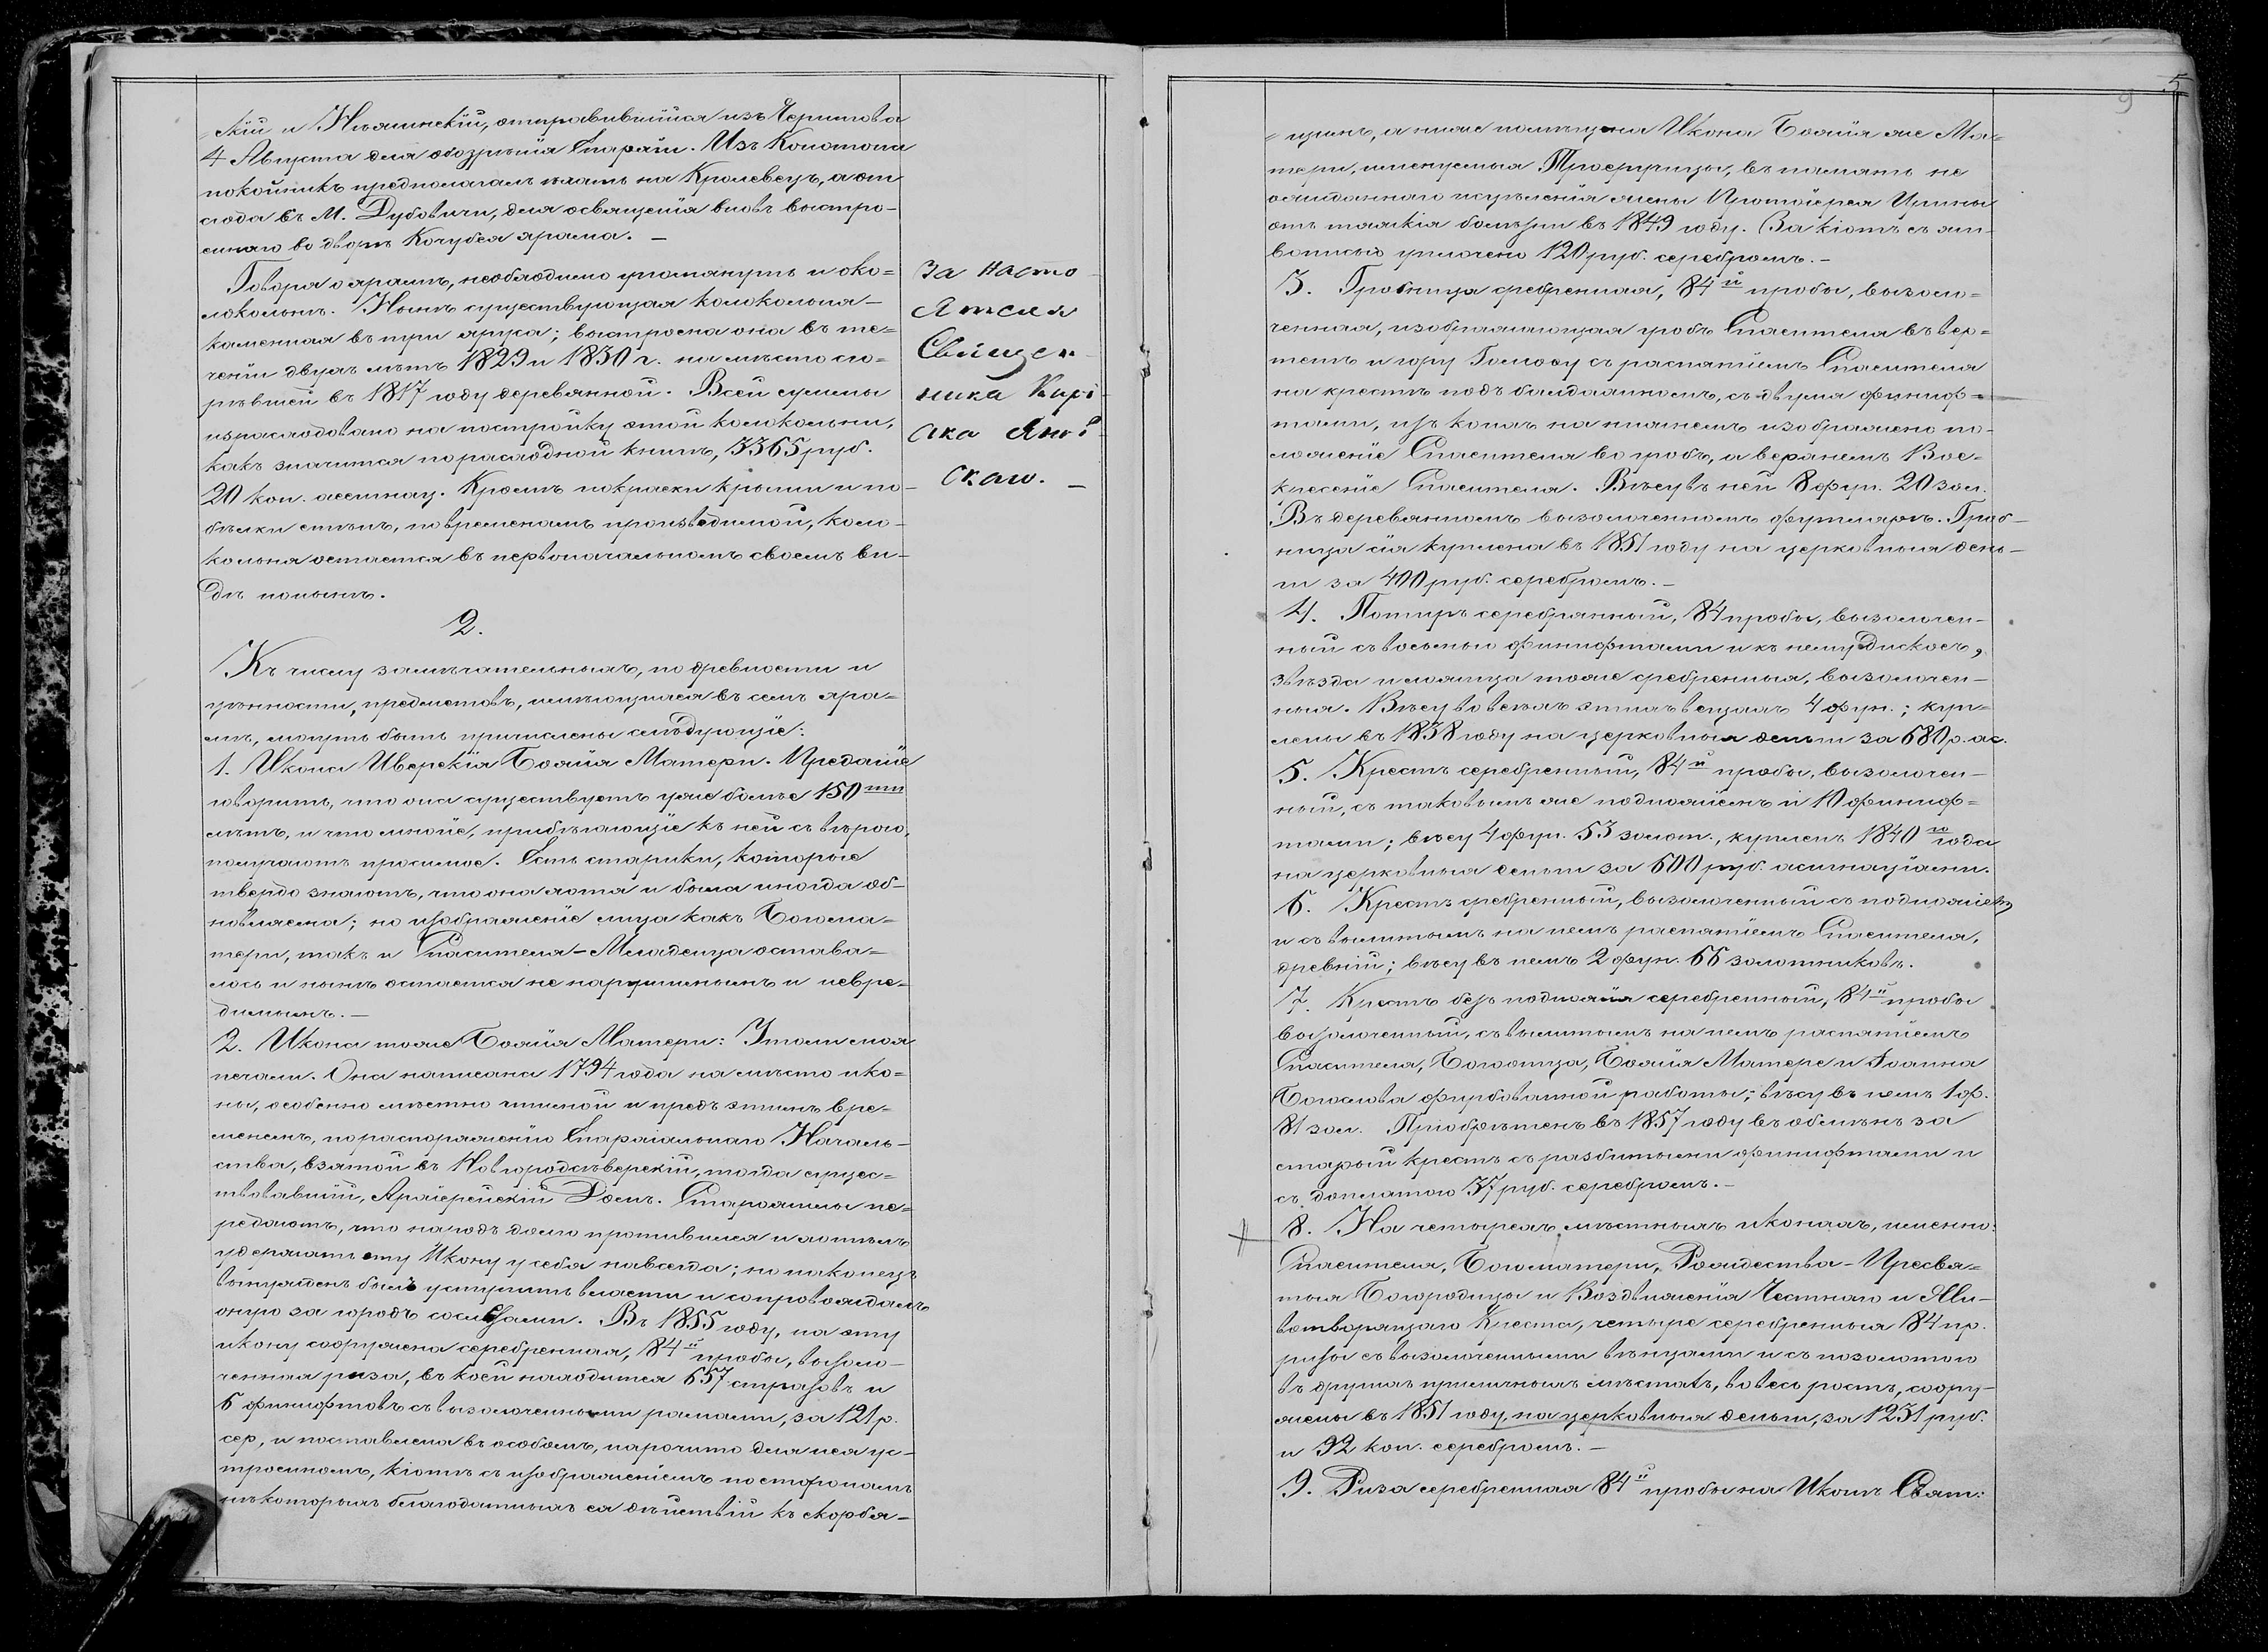 -скій и Нѣжинскій, отправившійся изъ Чернигова
4 Августа для обозрѣнія Епархіи. Изъ Конотопа
покойникъ предполагалъ ѣхать на Кролевецъ, а от
сюда въ М. Дубовичи, для освященія вновь выстро-
еннаго во дворѣ Кочубея храма. —
Говоря о храмѣ, необходимо упомянуть и око=
локольнѣ. Нынѣ существующая колокольня —
каменная въ три яруса; выстроена она въ те=
ченіи двухъ лѣтъ 1829 и 1830 г. на мѣсто сго=
рѣвшей въ 1817 году деревянной. Всей суммы
израсходовано на постройку этой колокольни,
какъ значится по расходной книгѣ, 3365 руб.
20 коп. ассигнац. Кромѣ покраски крыши и по-
бѣлки стѣнъ, по временамъ производимой, коло-
кольня остается въ первоначальномъ своемъ ви-
дѣ понынѣ.
2.
Къ числу замѣчательныхъ, по древности и
цѣнности, предметовъ, имѣющихся въ семъ хра=
мѣ, могутъ быть причислены слѣдующіе:
1. Икона Иверскія Божія Матери. Преданіе
говоритъ, что она существуетъ уже болѣе 150 ти
лѣтъ, и что многіе, прибѣгающіе къ ней съ вѣрою,
получаютъ просимое. Есть старики, которые
твердо знаютъ, что она хотя и была иногда об-
новляема; но изображеніе лица какъ Богома=
тери, такъ и Спасителя-Младенца остава=
лось и нынѣ остается не нарушимымъ и невре=
димымъ. —
2. Икона тоже Божія Матери: Утоли моя
печали. Она написана 1794 года на мѣсто ико=
ны, особенно мѣстно чтимой и предъ этимъ вре=
менемъ, по распоряженію Епархіальнаго Началь-
ства, взятой въ Новгородсѣверскій, тогда сущес=
твовавшій, Архіерейскій Домъ. Старожилы пе=
редаютъ, что народъ долго противился и хотѣлъ
удержать эту Икону у себя навсегда; но наконецъ
вынужденъ былъ уступить власти и сопровождалъ
оную за городъ со слезами. Въ 1855 году, на эту
икону сооружена серебренная, 84й пробы, вызоло-
ченная риза, въ коей находится 657 стразовъ и
6 финифтовъ съ вызолоченными рамами, за 121 р.
сер., и поставлена въ особомъ, нарочито для нея ус-
троенномъ, кіотѣ съ изображеніемъ по сторонамъ
нѣкоторыхъ благодатныхъ ея дѣйствій къ скорбя-
За насто
Ятеля
Священ-
ника Кирі-
ака Яно
скаго. —
5
9
=щимъ, а ниже помѣщена Икона Божія же Ма=
тери, именуемыя Троеручицы, въ память не
ожиданнаго исцѣленія жены Протоіерея Ирины
отъ тяжкія болѣзни въ 1849 году. За кіотъ съ жи-
вописью уплочено 120 руб. серебромъ. —
3. Гробница сребренная, 84й пробы, вызоло=
ченная, изображающая гробъ Спасителя въ вер=
тепѣ и гору Голгоѳу съ распятіемъ Спасителя
на крестѣ подъ балдахиномъ, съ двумя финиф=
тами, изъ коихъ на нижнемъ изображено по-
ложеніе Спасителя во гробъ, а верхнемъ Вос=
кресеніе Спасителя. Вѣсу въ ней 8 фун. 20 зол.
Въ деревянномъ вызолоченномъ футлярѣ. Гроб-
ница сія куплена въ 1851 году на церковныя день-
ги за 400 руб. серебромъ. —
4. Потиръ серебрянный, 84 пробы, вызолочен-
ный съ восьмью финифтами и къ нему дискосъ,
звѣзда и лжица тоже сребренныя, вызолочен-
ныя. Вѣсу во всѣхъ этихъ вещахъ 4 фун.; куп=
лены въ 1838 году на церковныя деньги за 680 р. ас.
5. Крестъ серебренный, 84й пробы, вызолочен-
ный, съ таковымъ же подножіемъ и 10 финиф=
тами; вѣсу 4 фун. 53 золот., купленъ 1840го года
на церковныя деньги за 600 руб. асигнаціями.
6. Крестъ сребренный, вызолоченный съ подножіемъ
и съ вылитымъ на немъ распятіемъ Спасителя,
древній; вѣсу въ немъ 2 фун. 66 золотниковъ.
7. Крестъ безъ подножія серебренный, 84й пробы
вызолоченный, съ вылитымъ на немъ распятіемъ
Спасителя, Богоотца, Божія Матере и Іоанна
Богослова фурбованной работы; вѣсу въ немъ 1 ф.
81 зол. Пріобрѣтенъ въ 1857 году въ обмѣнъ за
старый крестъ съ разбитыми финифтами и
съ доплатою 37 руб. серебромъ. —
8. На четырехъ мѣстныхъ иконахъ, именно:
Спасителя, Богоматери, Рождества-Пресвя=
тыя Богородицы и Воздвиженія Честнаго и Жи-
вотворящаго Креста, четыре серебренныя 84 пр.
ризы съ вызолоченными вѣнцами и съ позолотою
въ другихъ приличныхъ мѣстахъ, во весь ростъ, соору-
жены въ 1851 году, на церковныя деньги, за 1231 руб.
и 92 коп. серебромъ. —
9. Риза серебренная 84й пробы на Иконѣ Свят: